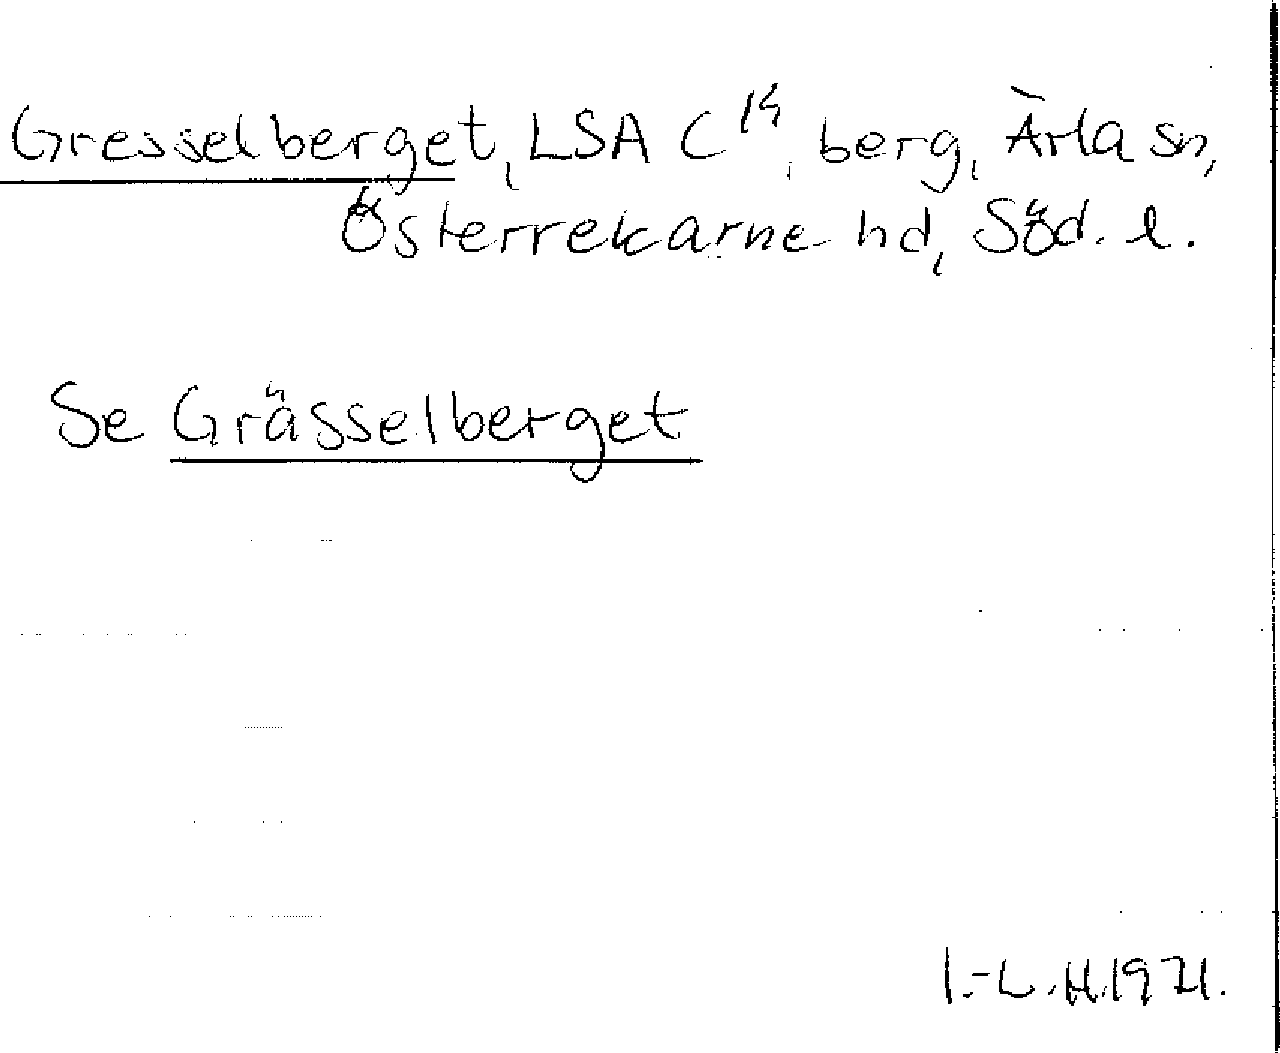 Gresselberget, LSA C14, berg, Ärla sn,
Österrekarne hd, Söd. l.
Se Grässelberget
I.-L.H.1971.